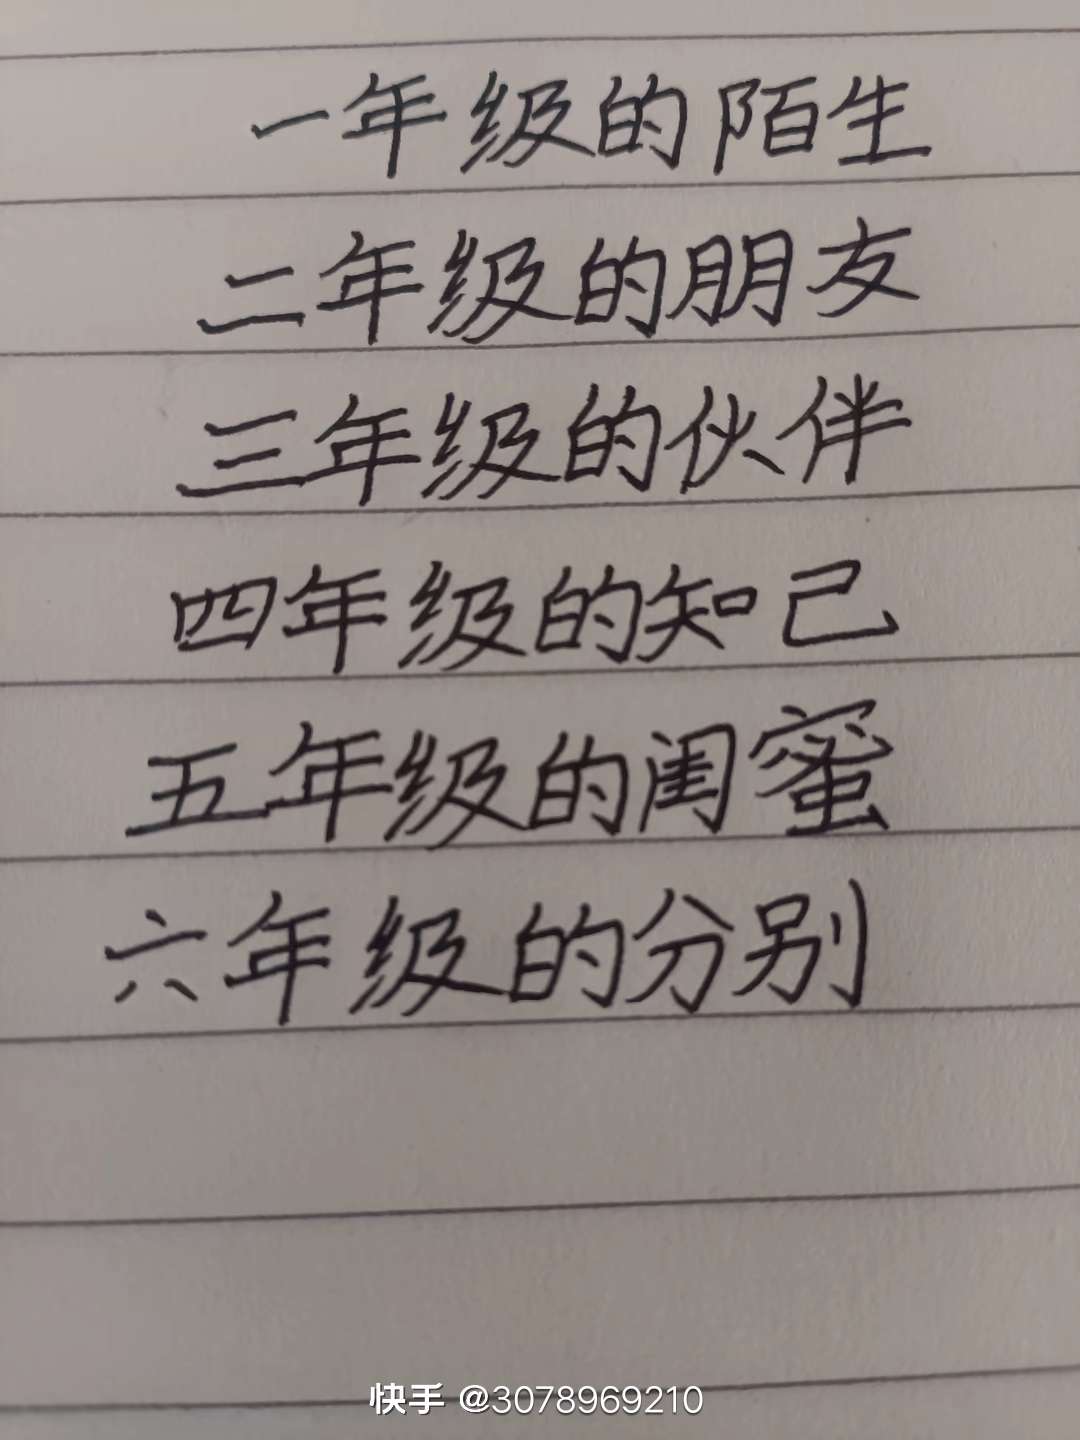 一年级的陌生
二年级的朋友
三年级的伙伴
四年级的知己
五年级的闺蜜
六年级的分别
快手 @3078969210